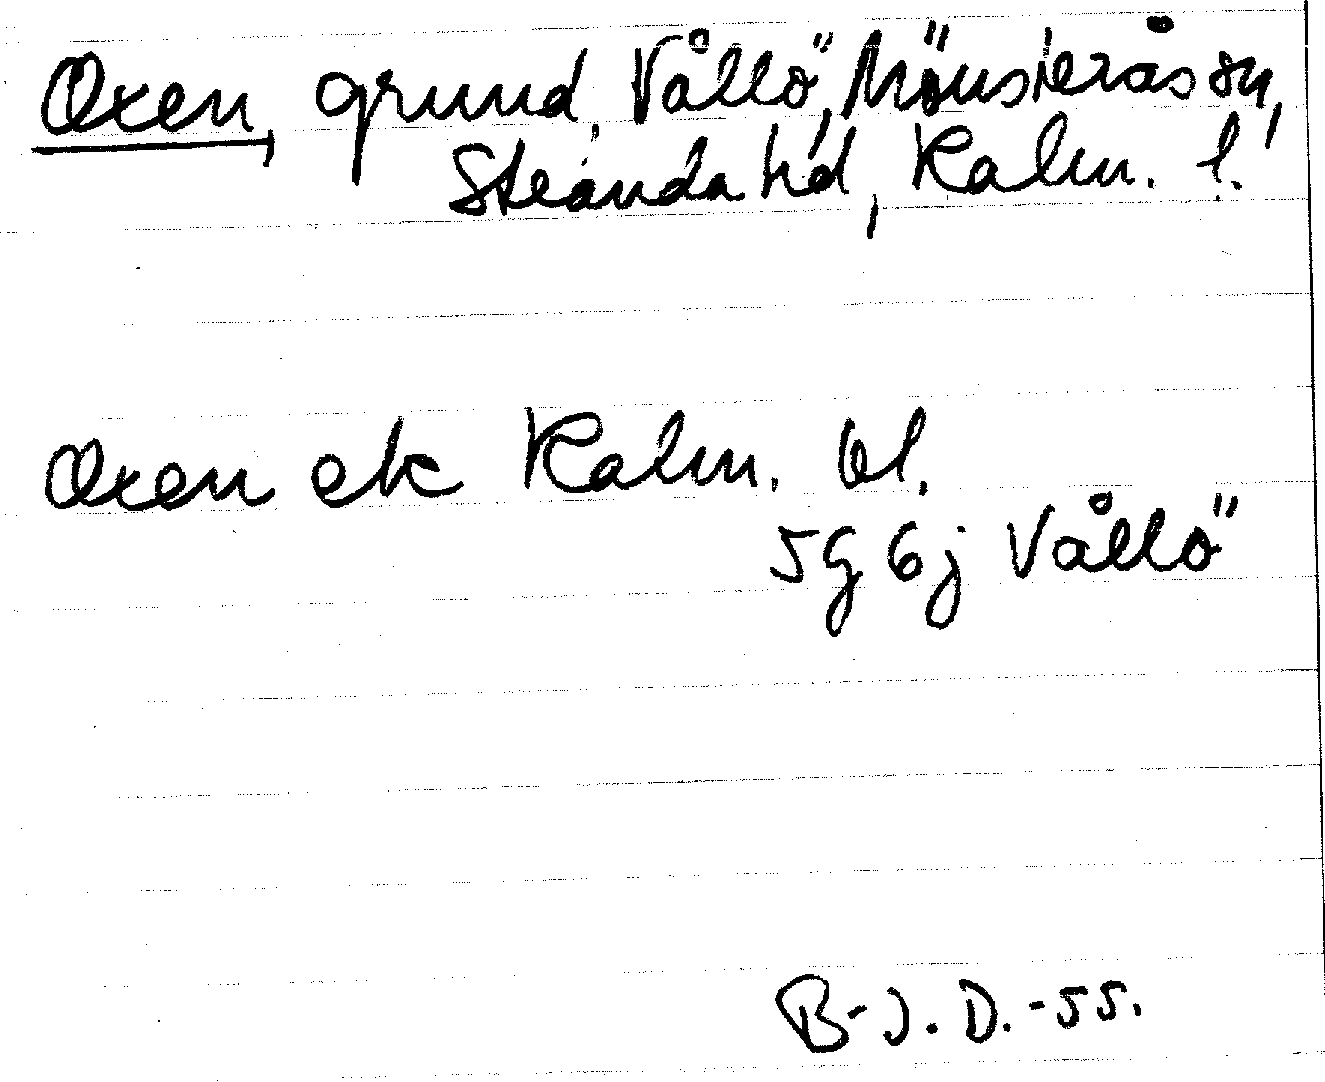 Oxen, grund, Vållö, Mönsterås sn,
Stranda hd, Kalm. l.
Oxen ek Kalm. bl.
5G 6j Vållö
B-J. D. -55.